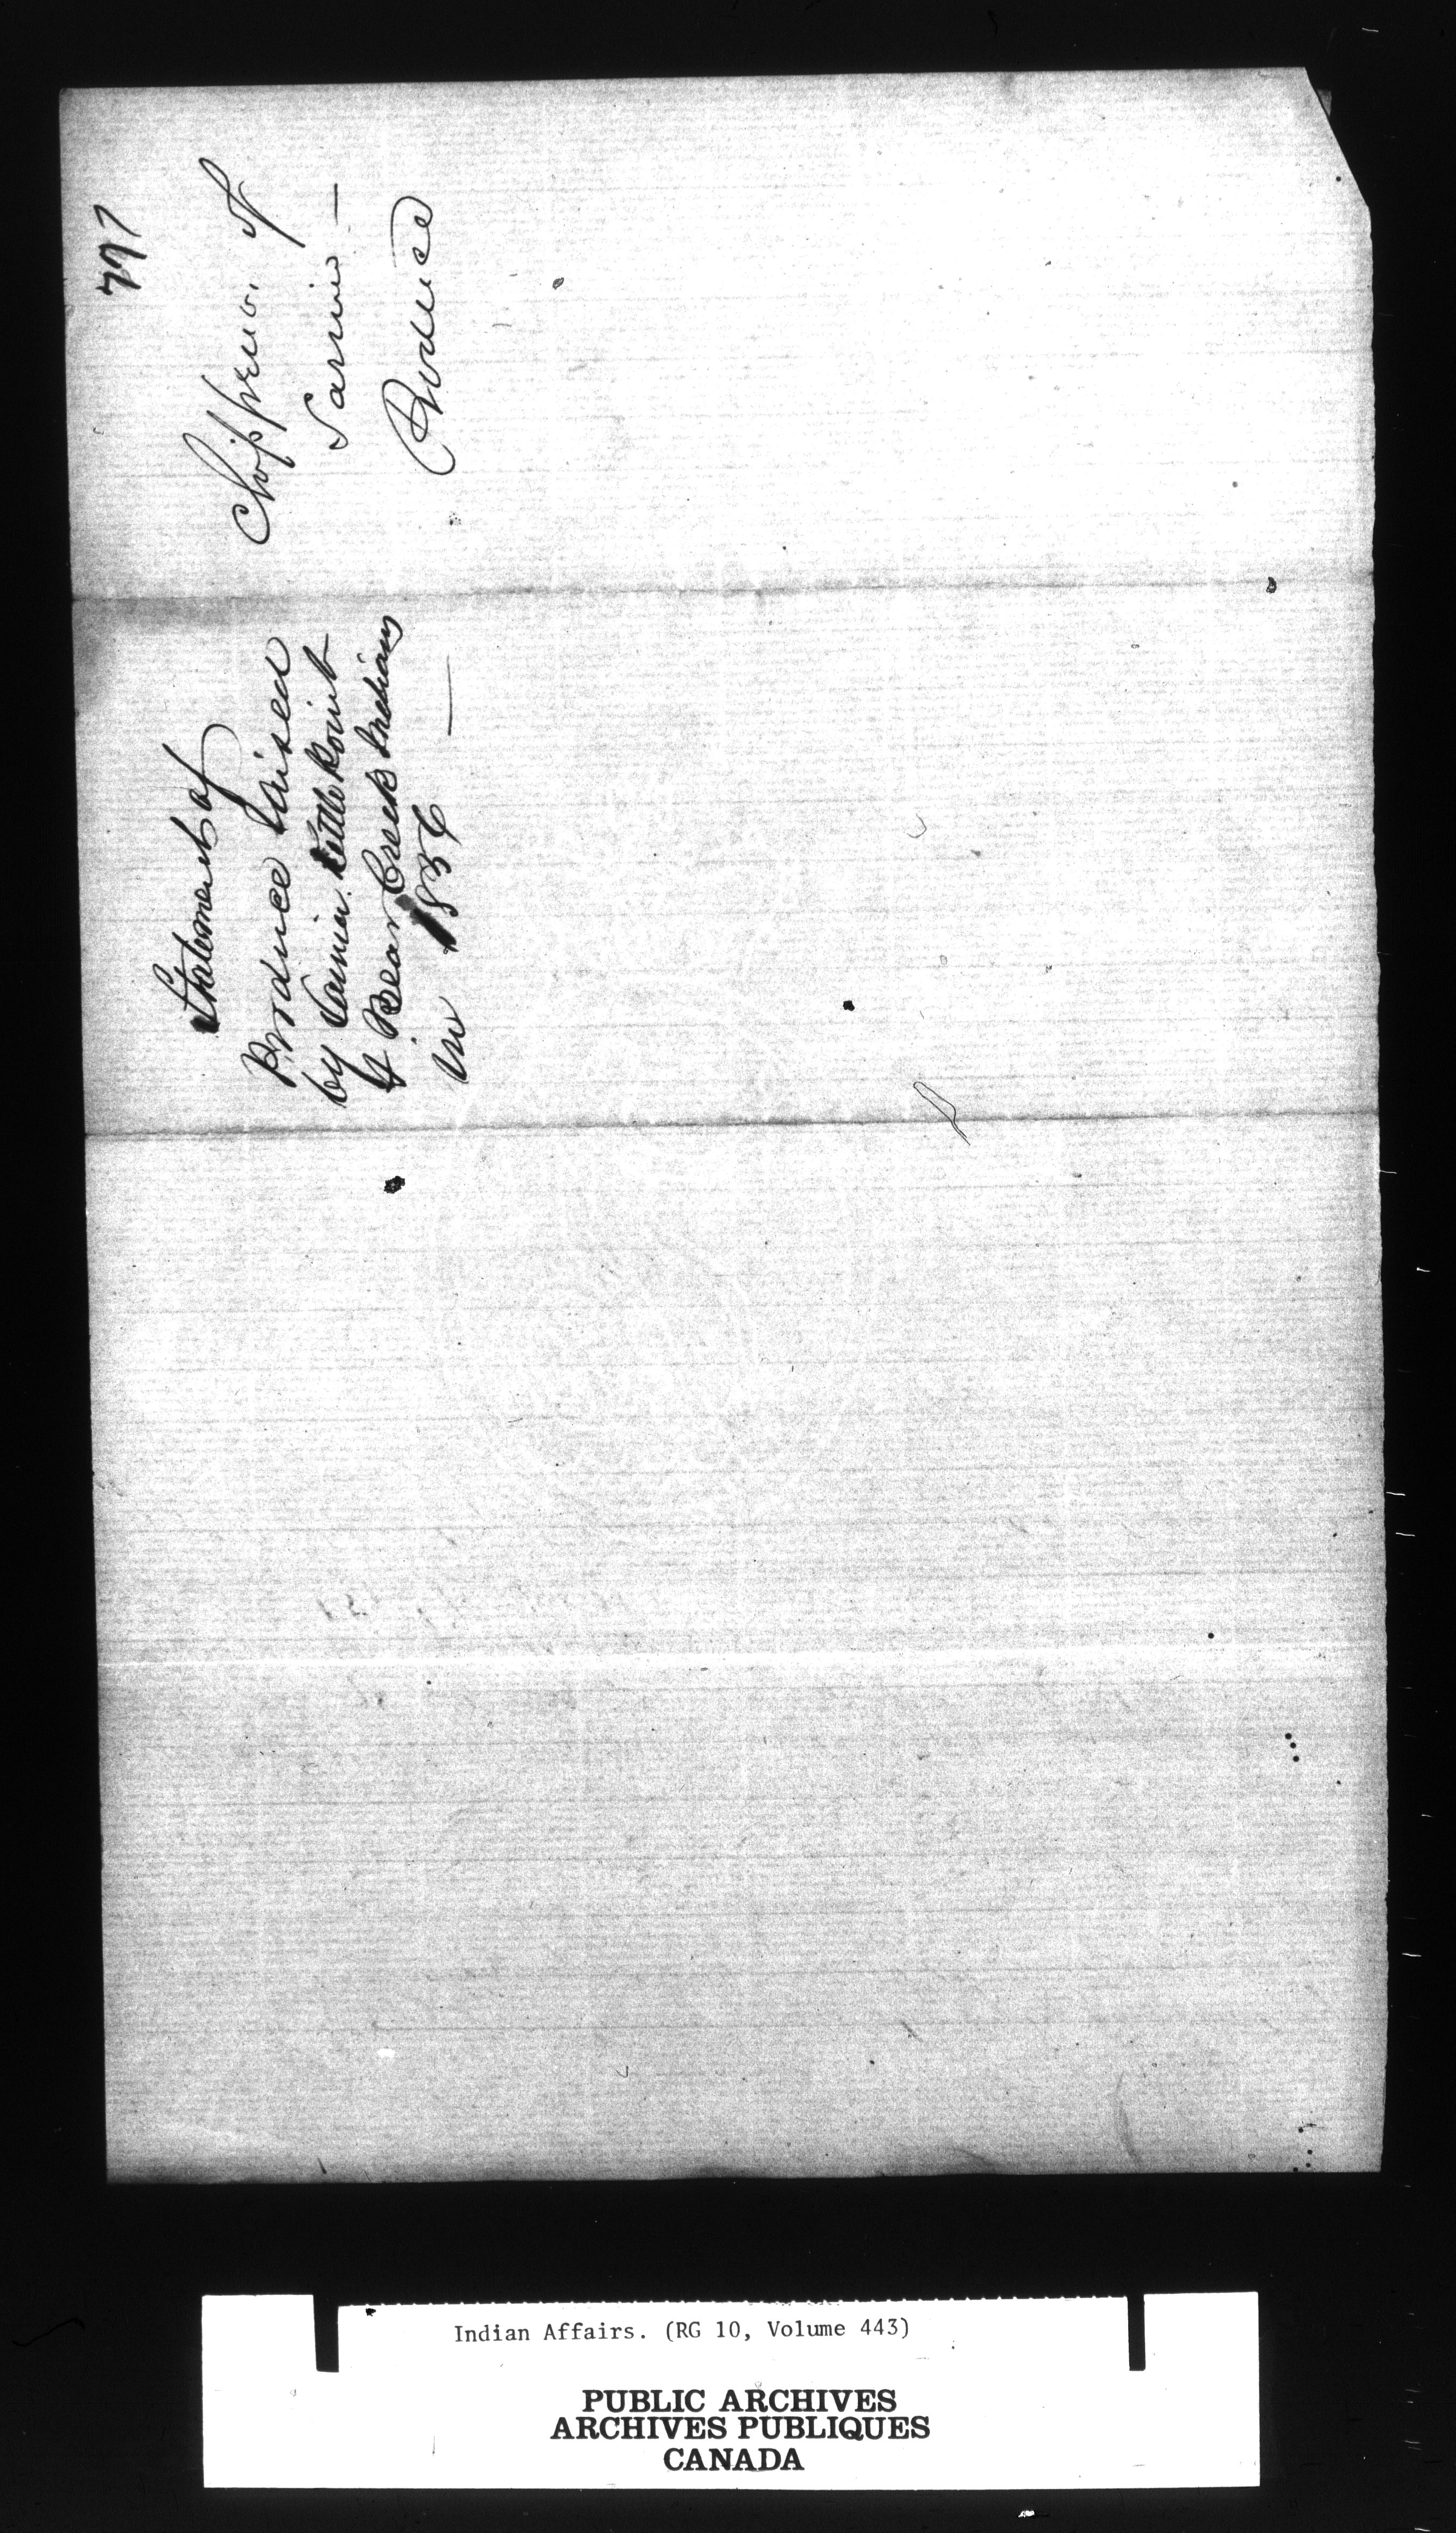 777
Chippewa. of
Sarnia —
Produce
Statement of
Produce Raised
by Sarnia Kettle Point
& Bear Creek Indians
in 1856 —
Indian Affairs. (RG 10, Volume 443)
PUBLIC ARCHIVES
ARCHIVES PUBLIQUES
CANADA